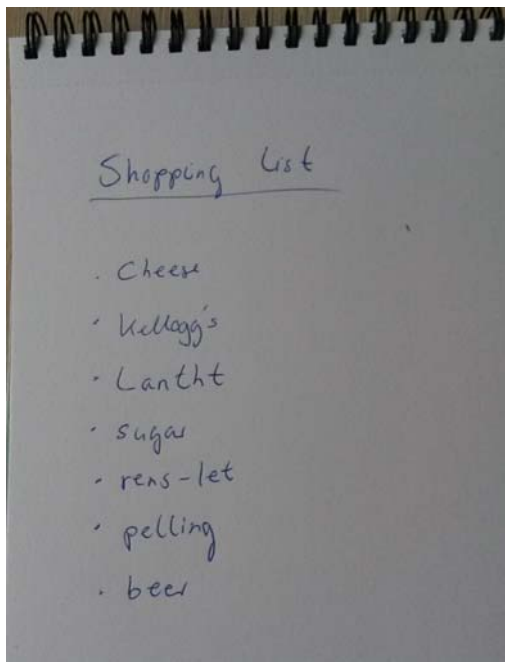 Shopping List
· Cheese
· Kellogg's
· Lantht
· sugar
· rens-let
· pelling
· beer